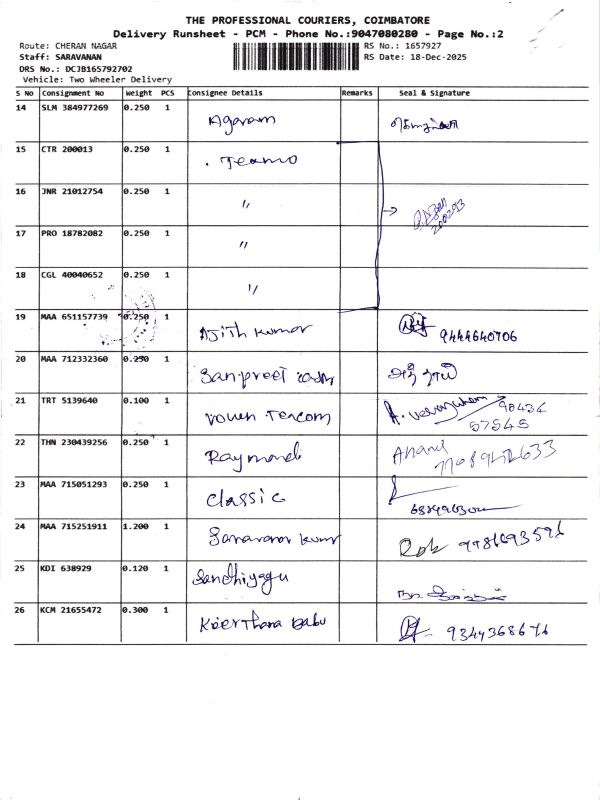 THE PROFESSIONAL COURIERS, COIMBATORE
Delivery Runsheet - PCM - Phone No.:9047080280 - Page No.:2
Route: CHERAN NAGAR
RS No.: 1657927
Staff: SARAVANAN
RS Date: 18-Dec-2025
DRS No.: DCJB165792702
Vehicle: Two Wheeler Delivery
S No Consignment No Weight PCS Consignee Details Remarks Seal & Signature
14 SLM 384977269 0.250 1 Agaram
15 CTR 200013 0.250 1 . Teamo
16 JNR 21012754 0.250 1 "
17 PRO 18782082 0.250 1 "
18 CGL 40040652 0.250 1 "
19 MAA 651157739 0.250 1 Ajith kumar 9444640706
20 MAA 712332360 0.290 1 Sanpreet
21 TRT 5139640 0.100 1 98434
57545
22 THN 230439256 0.250 1 Raymond Anand
23 MAA 715051293 0.250 1 Classic
24 MAA 715251911 1.200 1 Saravanan kumar
25 KDI 638929 0.120 1 Sandhiyagu
26 KCM 21655472 0.300 1 Keerthana Babu 9344368676